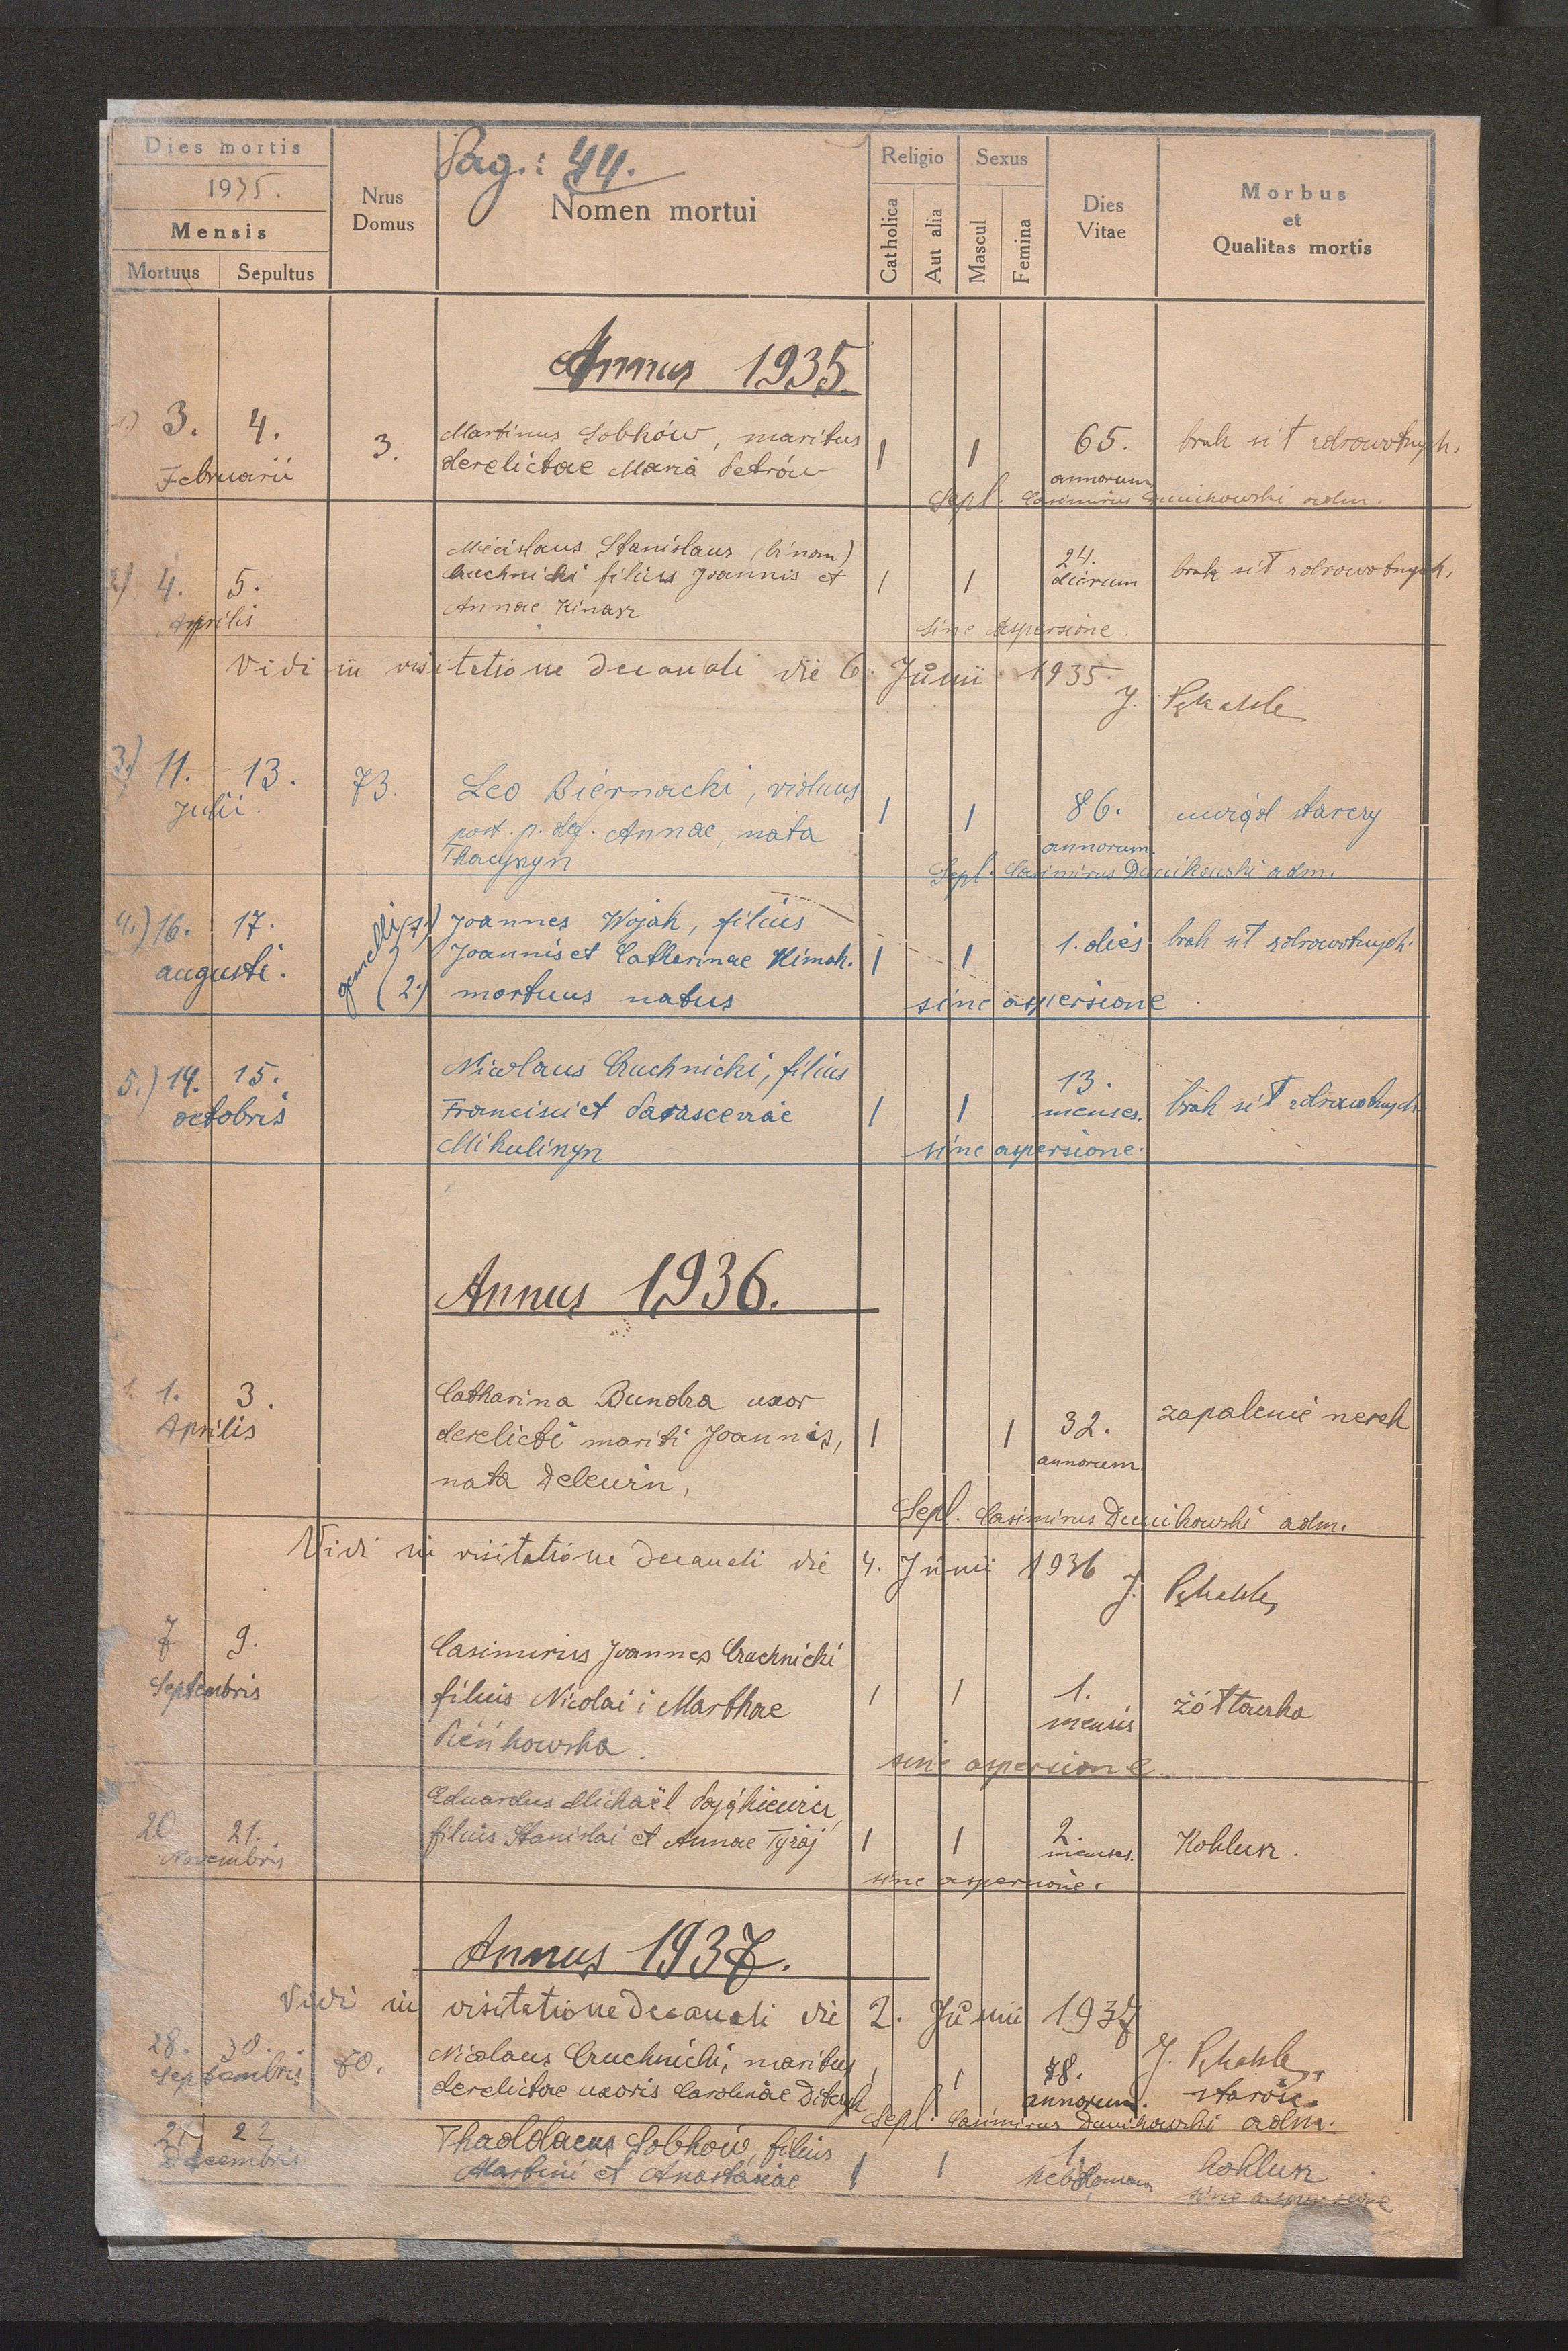 Pag.: 44.
Dies mortis
1935.
Mensis
Mortuus Sepultus
Nrus Domus
Nomen mortui
Religio
Catholica Aut alia
Sexus
Mascul Femina
Dies Vitae
Morbus
et
Qualitas mortis
Annus 1935.
1.) 3. 4. 3. Martinus Sobków, maritus 1 1 65. brak sił zdrowotnych.
Februarii derelictae Maria Petrów annorum
Sepl. Casimirus Dunikowski adm.
Miecislaus Stanislaus (binom) 24.
2) 4. 5. Cruchnicki filius Joannis et 1 1 dierum brak sił zdrowotnych.
Aprilis Annae Kinasz
sine aspersione.
Vidi in visitatione decanali die 6. Junii 1935.
J.
3.) 11. 13. 73. Leo Biernacki, viduus 1 1 86. uwiąd starczy
Julii. post. p. def. Annae, nata annorum.
Sepl. Casimirus Dunikowski adm.
4.) 16. 17. gemelli (1.) Joannes Wojak, filius
augusti. Joannis et Catharinae Klimak. 1 1 1. dies brak sił zdrowotnych.
(2.) mortuus natus sine aspersione
5.) 14. 15. Nicolaus Cruchnicki, filius 13.
octobris Francisci et Parasceviae 1 1 menses. brak sił zdrowotnych
Mikulinyn sine aspersione.
Annus 1936.
1. 1. 3. Catharina Bundza uxor
Aprilis derelicti mariti Joannis, 1 1 32. zapalenie nerek
nata Deleurin, annorum.
Sepl. Casimirus Dunikowski adm.
Vidi in visitatione decanali die 4. Junii 1936
J.
7 9. Casimirus Joannes Cruchnicki
Septembris filius Nicolai i Marthae 1 1 1. mensis żółtaczka
Pieńkowska.
sine aspersione.
Eduardus Michaël
20 21. filius Stanislai et Annae Tyraj 1 1 2. menses. Koklusz.
Novembris
sine aspersione.
Annus 1937.
Vidi in visitatione decanali die 2. Junii 1937
J.
28. 30. 70. Nicolaus Cruchnicki, maritus 1 1 78. starość.
Septembris derelictae uxoris Carolinae annorum.
Sepl. Casimirus Dunikowski adm.
21 22 Thaddaeus Sobków, filius 1.
Decembris Martini et Anastasiae 1 1 hebdomada koklusz
sine aspersione